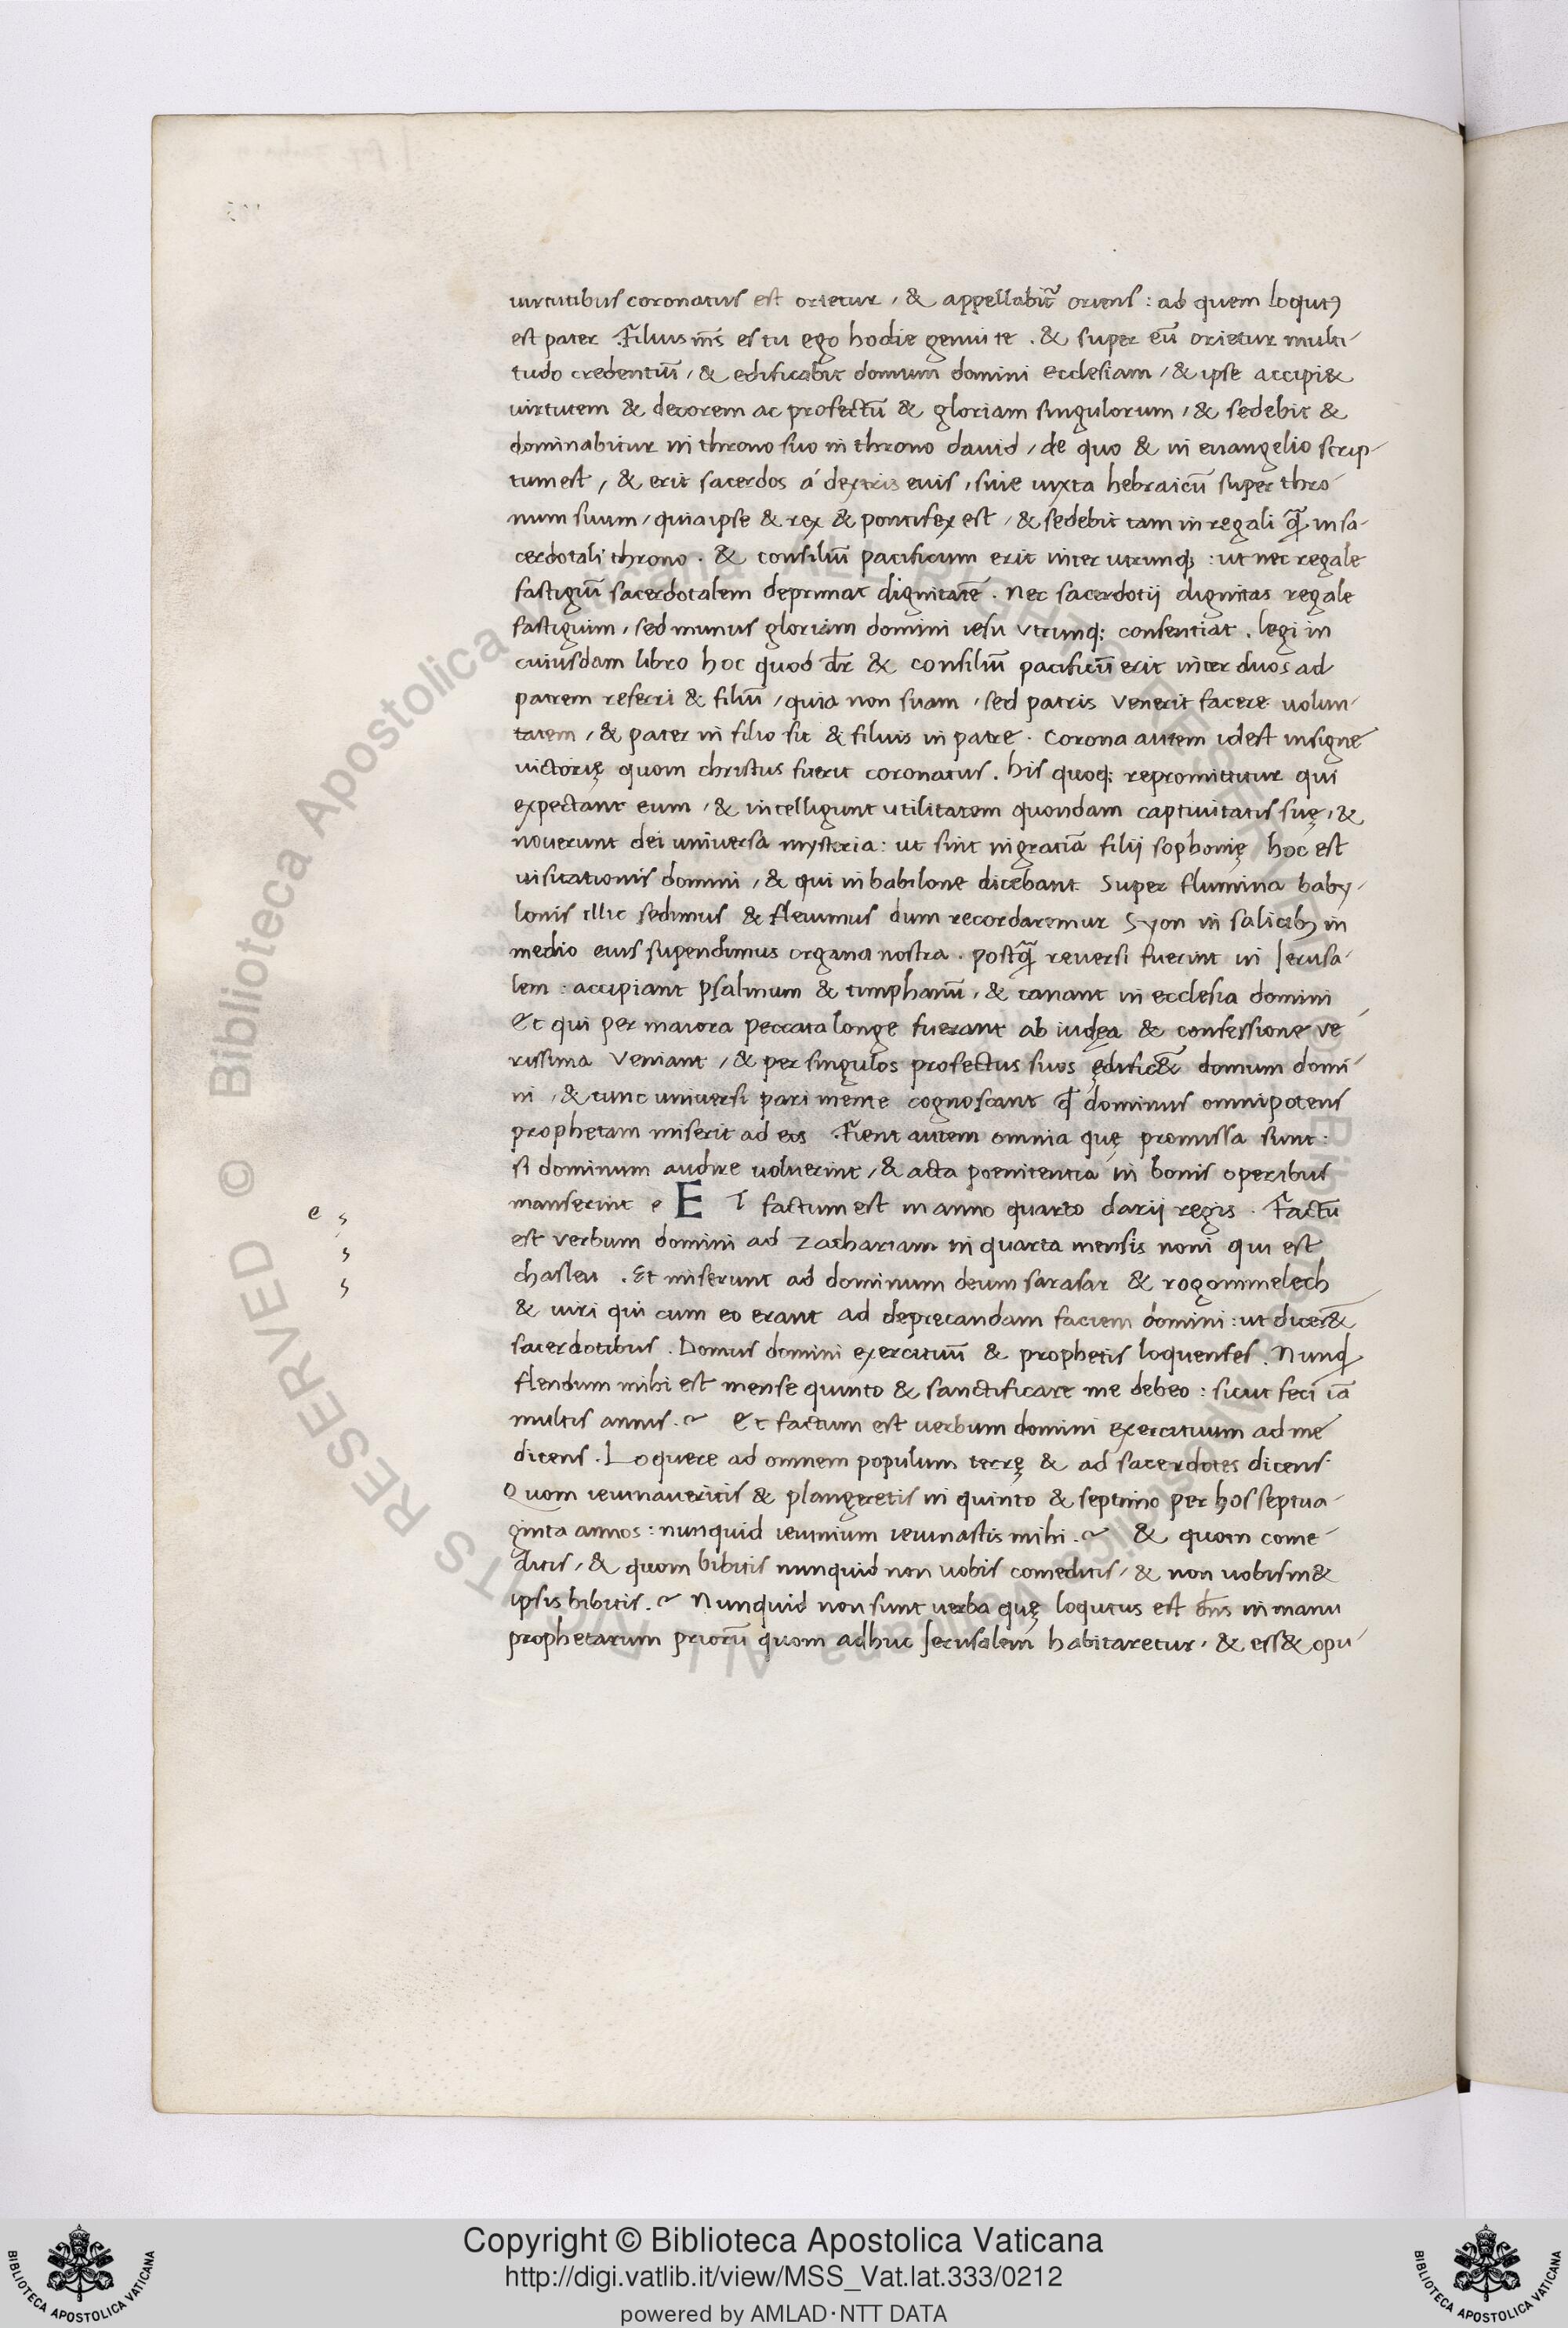 uirtutibus coronatus est orietur, & appellabit̃ oriens: ad quem loqutꝰ
est pater Filius m̃s es tu ego hodie genui te. & super eũ orietur multi-
tudo credentiũ, & edificabit domum domini ecclesiam, & ipse accipi&
uirtutem & decorem ac profectũ & gloriam singulorum, & sedebit &
dominabitur in throno suo in throno dauid, de quo & in euangelio scrip-
tum est, & erit sacerdos á dextris euis, siue iuxta hebraicũ super thro-
num suum, quia ipse & rex & pontifex est, & sedebit tam in regali q̃ in sa-
cerdotali throno. & consiliũ pacificum erit inter utrunqꝫ: ut nec regale
fastigiũ sacerdotalem deprimat dignitatẽ. Nec sacerdotij dignitas regale
fastigiuim, sed munus gloriam domini iesu vtrunq; consentiat. legi in
cuiusdam libro hoc quod dr̃ & consiliũ pacificũ erit inter duos ad
patrem referri & filiũ, quia non suam, sed patris venerit facere uolun-
tatem, & pater in filio sit & filius in patre. Corona autem idest insigne
uictorię quom christus fuerit coronatus. his quoq; repromittitur qui
expectant eum, & intelligunt utilitatem quondam captiuitatis suę, &
nouerunt dei uniuersa mysteria: ut sint in gratiã filij sophonię hoc est
uisitationis domini, & qui in babilone dicebant Super flumina baby-
lonis illic sedimus & fleuimus dum recordaremur Syon in salicibꝫ in
medio euis supendimus organa nostra. postq̃ reuersi fuerint in Ierusa-
lem: accipiant psalmum & timphaniũ, & canant in ecclesia domini
Et qui per maiora peccata longe fuerant ab iudęa & confessione ve-
rissima veniant, & per singulos profectus suos ędific&̃ domum domi-
ni, & tunc uniuersi pari mente cognoscant ꝙ dominus omnipotens
prophetam miserit ad eos Fient autem omnia quę promissa sunt.
si dominum audire uoluerint, & acta poenitentia in bonis operibus
manserint e E T factum est in anno quarto darij regis. Factũ
e s
est verbum domini ad Zachariam in quarta mensis noni qui est
s
chasleu. Et miserunt ad dominum deum sarasar & rogommelech
s
& uiri qui cum eo erant ad deprecandam faciem domini: ut dicer&
sacerdotibus. Domus domini exercituũ & prophetis loquenses. Nunqđ
flendum mihi est mense quinto & sanctificare me debeo: sicut feci iã
multis annis.~ Et factum est uerbum domini exercituum ad me
dicens. Loquere ad omnem populum terrę & ad sacerdotes dicens
Quom ieiunaueritis & plangeretis in quinto & septimo per hos septua-
ginta annos: nunquid ieiunium ieiunastis mihi.~ & quom come-
ditis, & quom bibitis nunquid non uobis comeditis, & non uobism&
ipsis bibitis.~ Nunquid non sunt uerba quę loqutus est dñs in manu
prophetarum priorũ quom adhuc Ierusalem habitaretur, & ess& opu-
Copyright © Biblioteca Apostolica Vaticana
http://digi.vatlib.it/view/MSS_Vat.lat.333/0212
powered by AMLAD·NTT DATA